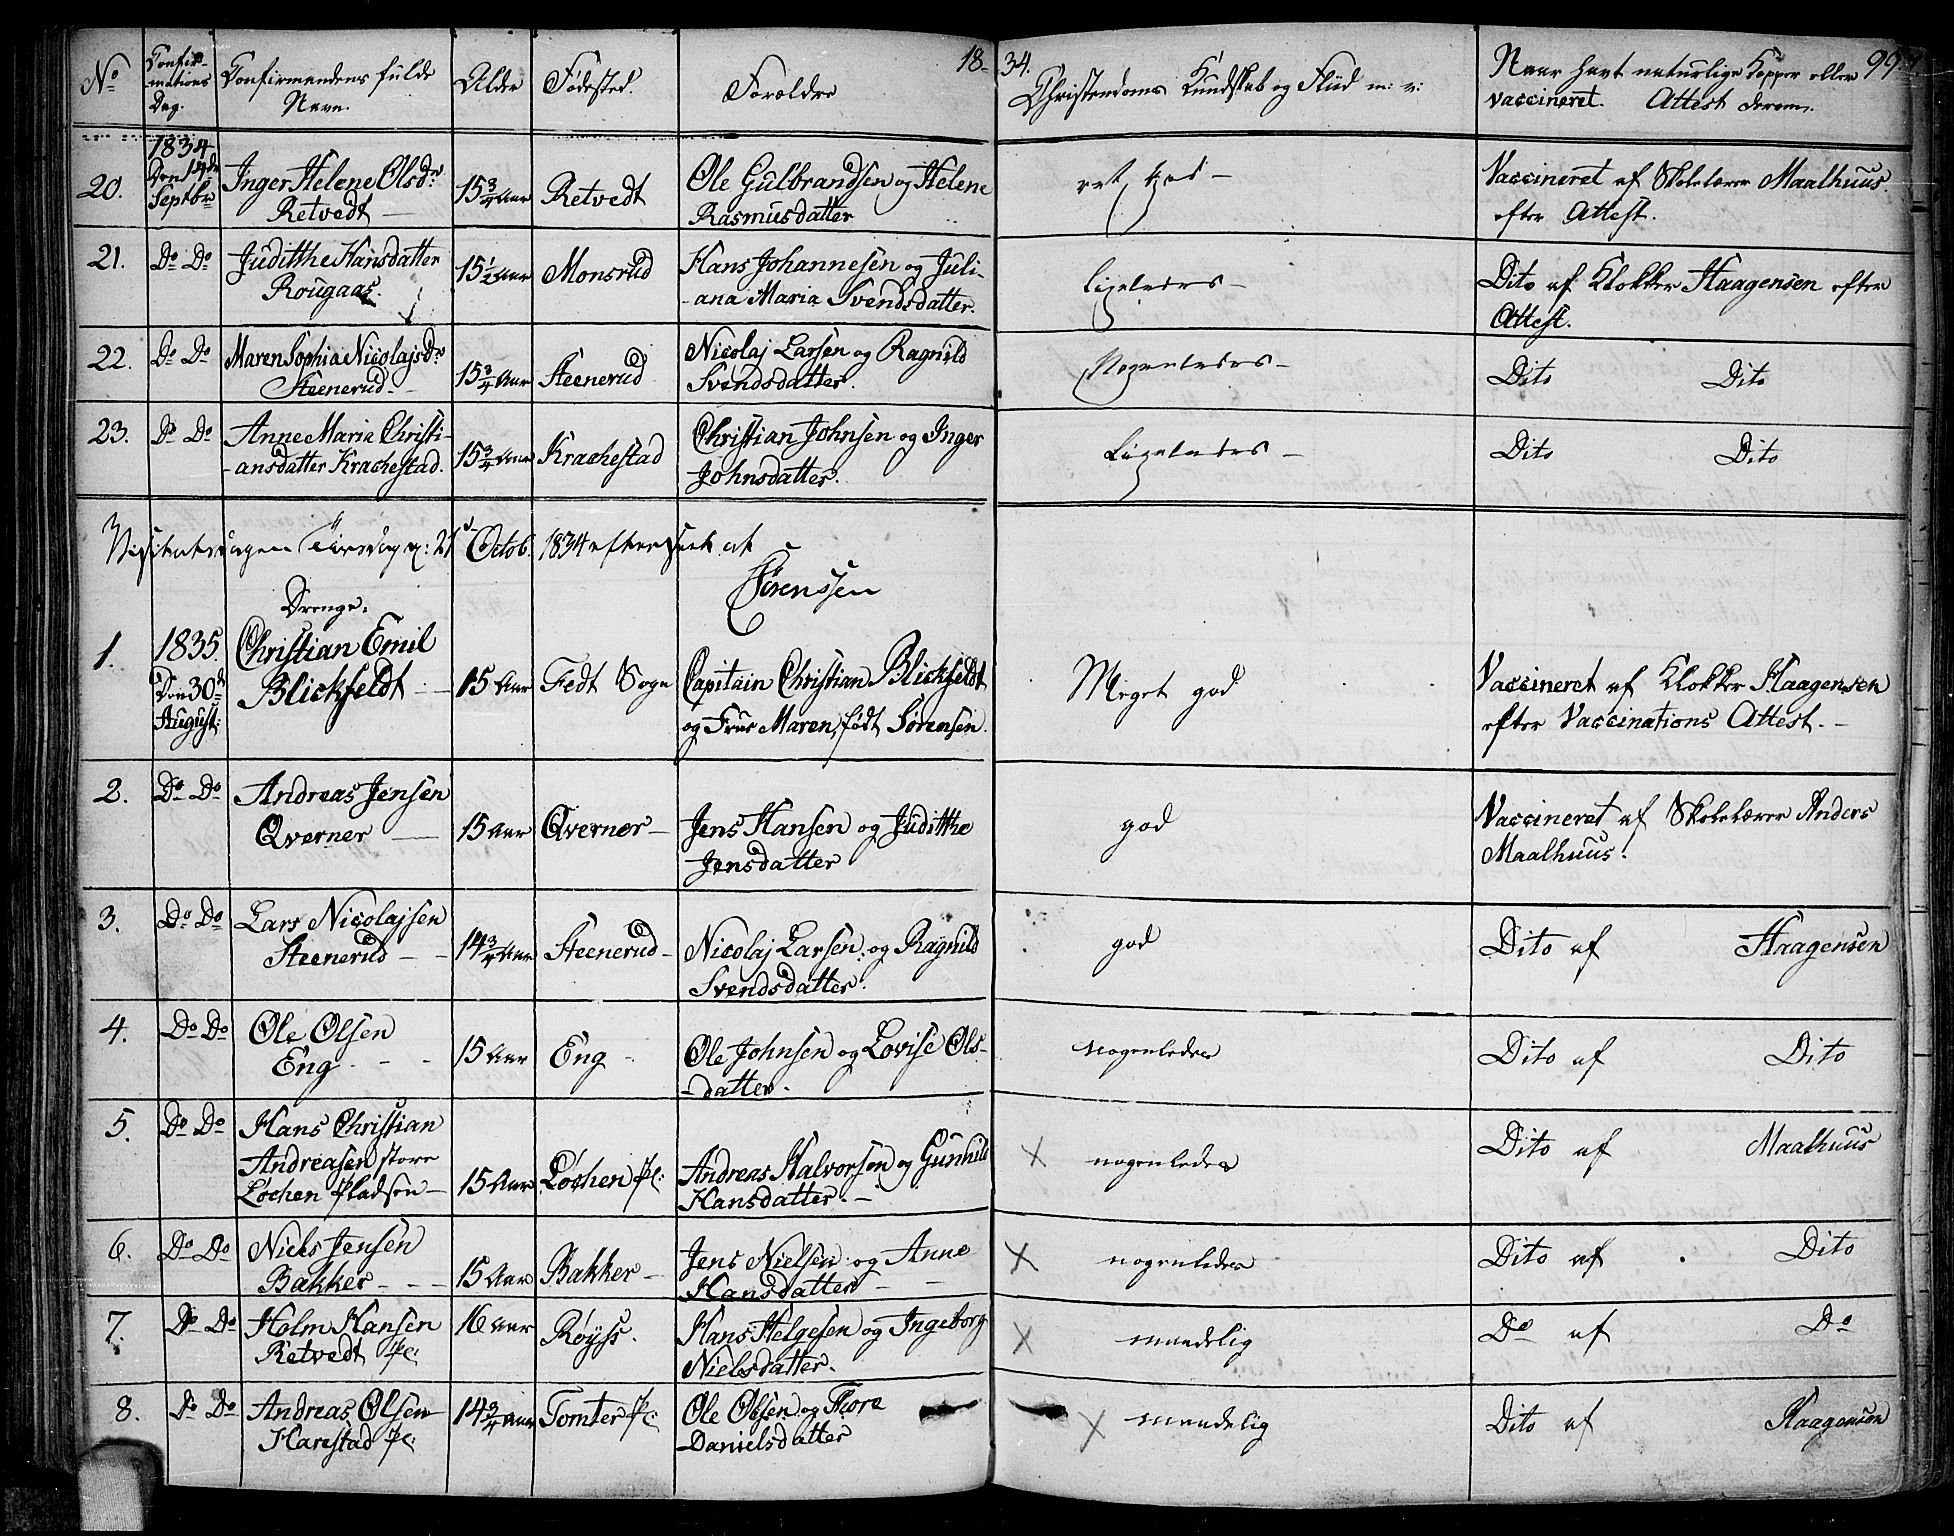 18 34. 99.
No Confirmations Dag. Confirmandens fulde Navn. Alder Fødested. Forældre Christendoms Kundskab og Flid m: v: Naar havt naturlige Kopper eller vaccineret. Attest derom.
20. 1834 Den 14de Septbr Inger Helene Olsdr: Retvedt — 15 3/4 Aar Retvedt Ole Gulbrandsen og Helene Rasmusdatter ret god — Vaccineret af Skolelærer Maalhuus efter Attest.
21. Do Do Judithe Hansdatter Rougaas. 15 1/2 Aar Monsrud Hans Johannesen og Juli-
-ana Maria Svendsdatter. ligeledes — Dito af Klokker Haagensen efter Attest.
22. Do Do Maren Sophia Nicolajsdr: Steenerud — 15 3/4 Aar Steenerud Nicolaj Larsen og Ragnild Svendsdatter. Nogenledes — Dito Dito
23. Do Do Anne Maria Christi-
-ansdatter Krachestad. 15 3/4 Aar Krachestad Christian Johnsen og Inger Johnsdatter. Ligeledes — Dito Dito
Visitatsdagen Tirsdag d: 21 Octob. 1834 efterseet af
Sørenssen
Drenge.
1. 1835. Den 30te August: Christian Emil Blickfeldt — 15 Aar Fedt Sogn Capitain Christian Blickfeldt og Frue Maren, født Sørensen. Meget god Vaccineret af Klokker Haagensen efter Vaccinations Attest. —
2. Do Do Andreas Jensen Qverner — 15 Aar Qverner — Jens Hansen og Judithe Jensdatter god Vaccineret af Skolelærer Anders Maalhuus.
3. Do Do Lars Nicolajsen Steenerud — 14 3/4 Aar Steenerud — Nicolaj Larsen og Ragnild Svendsdatter. god Dito af Haagensen
4. Do Do Ole Olsen Eng — 15 Aar Eng Ole Johnsen og Lovise Ols-
-datter. nogenledes Dito af Dito
5. Do Do Hans Christian Andreasen store Løchen Pladsen — 15 Aar Løchen Pl: Andreas Halvorsen og Gunhild Hansdatter. — × nogenledes Dito af Maalhuus
6. Do Do Niels Jensen Bakker — 15 Aar Bakker — Jens Nielsen og Anne Hansdatter — × nogenledes Dito af Dito
7. Do Do Holm Hansen Retvedt Pl: 16 Aar Røyss. Hans Helgesen og Ingeborg Nielsdatter. × maadelig Do af Do
8. Do Do Andreas Olsen Harestad Pl: 14 3/4 Aar Tomter Pl: Ole Olsen og Thore Danielsdatter × maadelig Dito af Haagensen